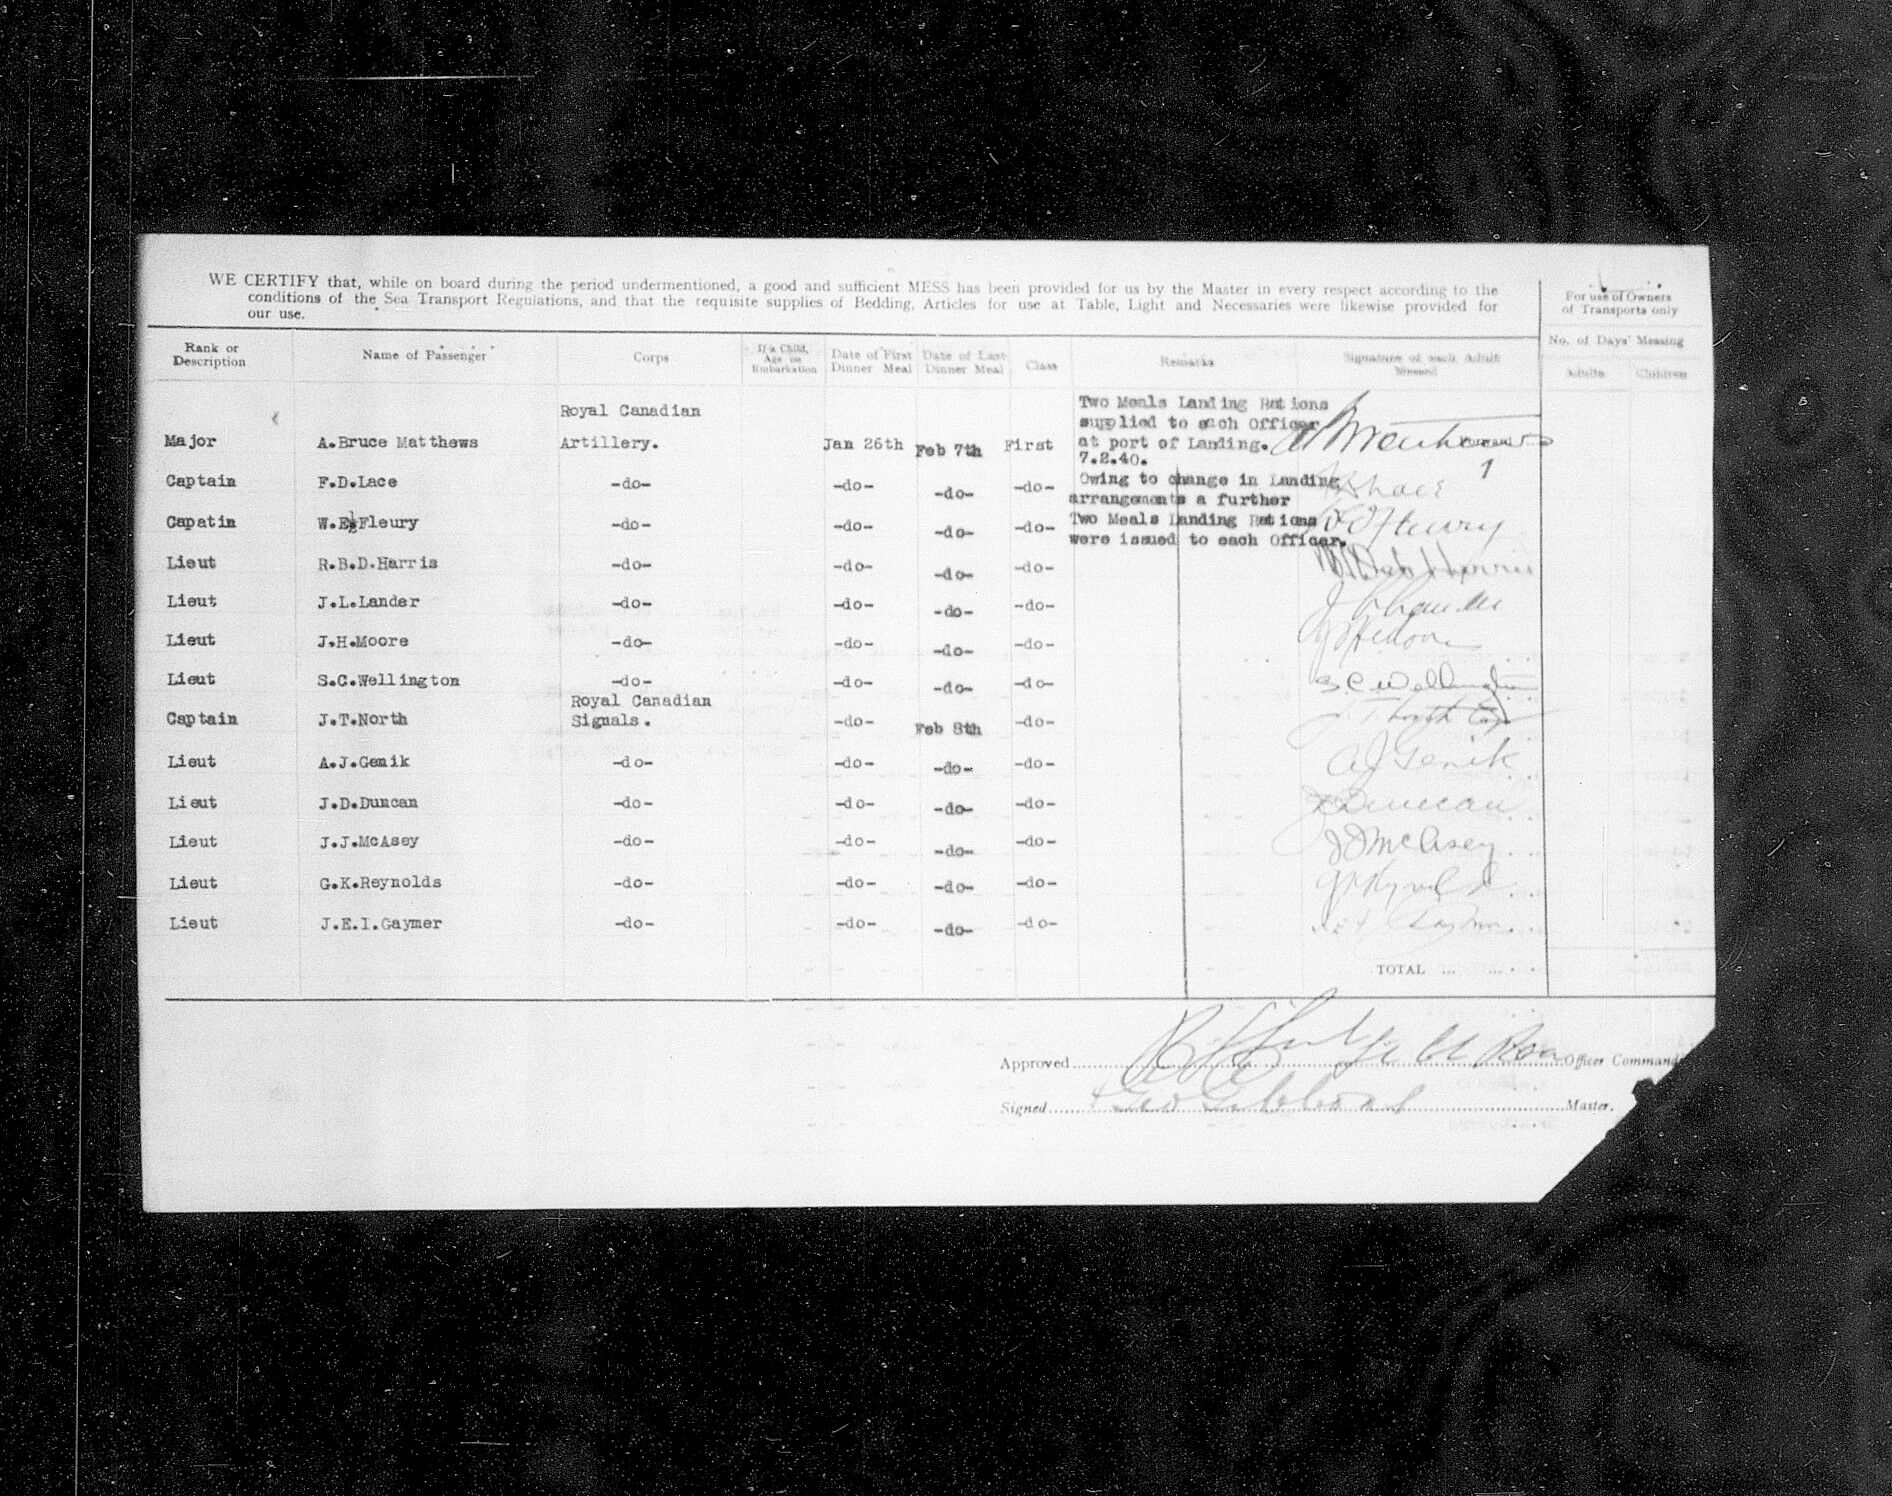 WE CERTIFY that, while on board during the period undermentioned, a good and sufficient MESS has been provided for us by the Master in every respect according to the
conditions of the Sea Transport Regulations, and that the requisite supplies of Bedding, Articles for use at Table, Light and Necessaries were likewise provided for
our use.
For use of Owners
of Transports only
No. of Days' Messing
Adults Children
Rank or Description Name of Passenger Corps If a Child, Age on Embarkation Date of First Dinner Meal Date of Last Dinner Meal Class Remarks Signature of each Adult Messed
Royal Canadian Two Meals Landing Rations
supplied to each Officer
Major A.Bruce Matthews Artillery. Jan 26th Feb 7th First at port of Landing.
7.2.40. 1
Captain F.D.Lace -do- -do- -do- -do- Owing to change in Landing
arrangements a further
Capatin W.E.Fleury -do- -do- -do- -do- Two Meals Landing Rations Fleury
were issued to each Officer.
Lieut R.B.D.Harris -do- -do- -do- -do- Harris
Lieut J.L.Lander -do- -do- -do- -do-
Lieut J.H.Moore -do- -do- -do- -do-
Lieut S.C.Wellington -do- -do- -do- -do- S C Wellington
Royal Canadian
Captain J.T.North Signals. -do- Feb 8th -do- J. T North Capt
Lieut A.J.Genik -do- -do- -do- -do- A J Genik
Lieut J.D.Duncan -do- -do- -do- -do- Duncan
Lieut J.J.McAsey -do- -do- -do- -do- J J McAsey
Lieut G.K.Reynolds -do- -do- -do- -do-
Lieut J.E.I.Gaymer -do- -do- -do- -do-
TOTAL ... ... . .
Approved Officer Command
Signed Geo Gibbons Master.